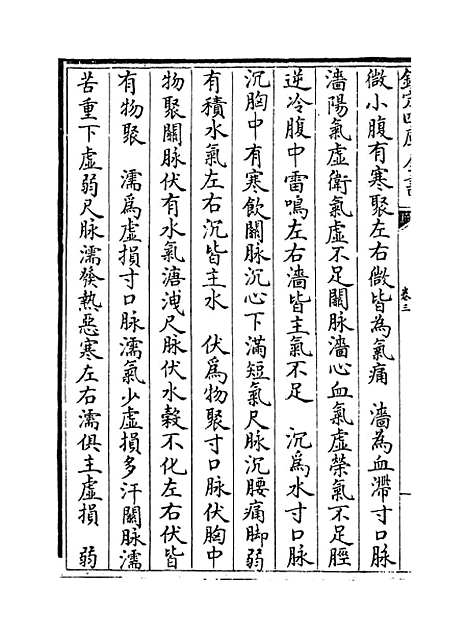 欽定四庫全書
卷三
微小腹有寒聚左右微皆為氣痛　濇為血滯寸口脉
濇陽氣虛衛氣虛不足關脉濇心血氣虛榮氣不足脛
逆冷腹中雷鳴左右濇皆主氣不足　沉爲水寸口脉
沉胸中有寒飲關脉沉心下滿短氣尺脉沉腰痛脚弱
有積水氣左右沉皆主水　伏爲物聚寸口脉伏胸中
物聚關脉伏有水氣溏洩尺脉伏水榖不化左右伏皆
有物聚　濡爲虛損寸口脉濡氣少虛損多汗關脉濡
苦重下虛弱尺脉濡發熱惡寒左右濡俱主虛損　弱